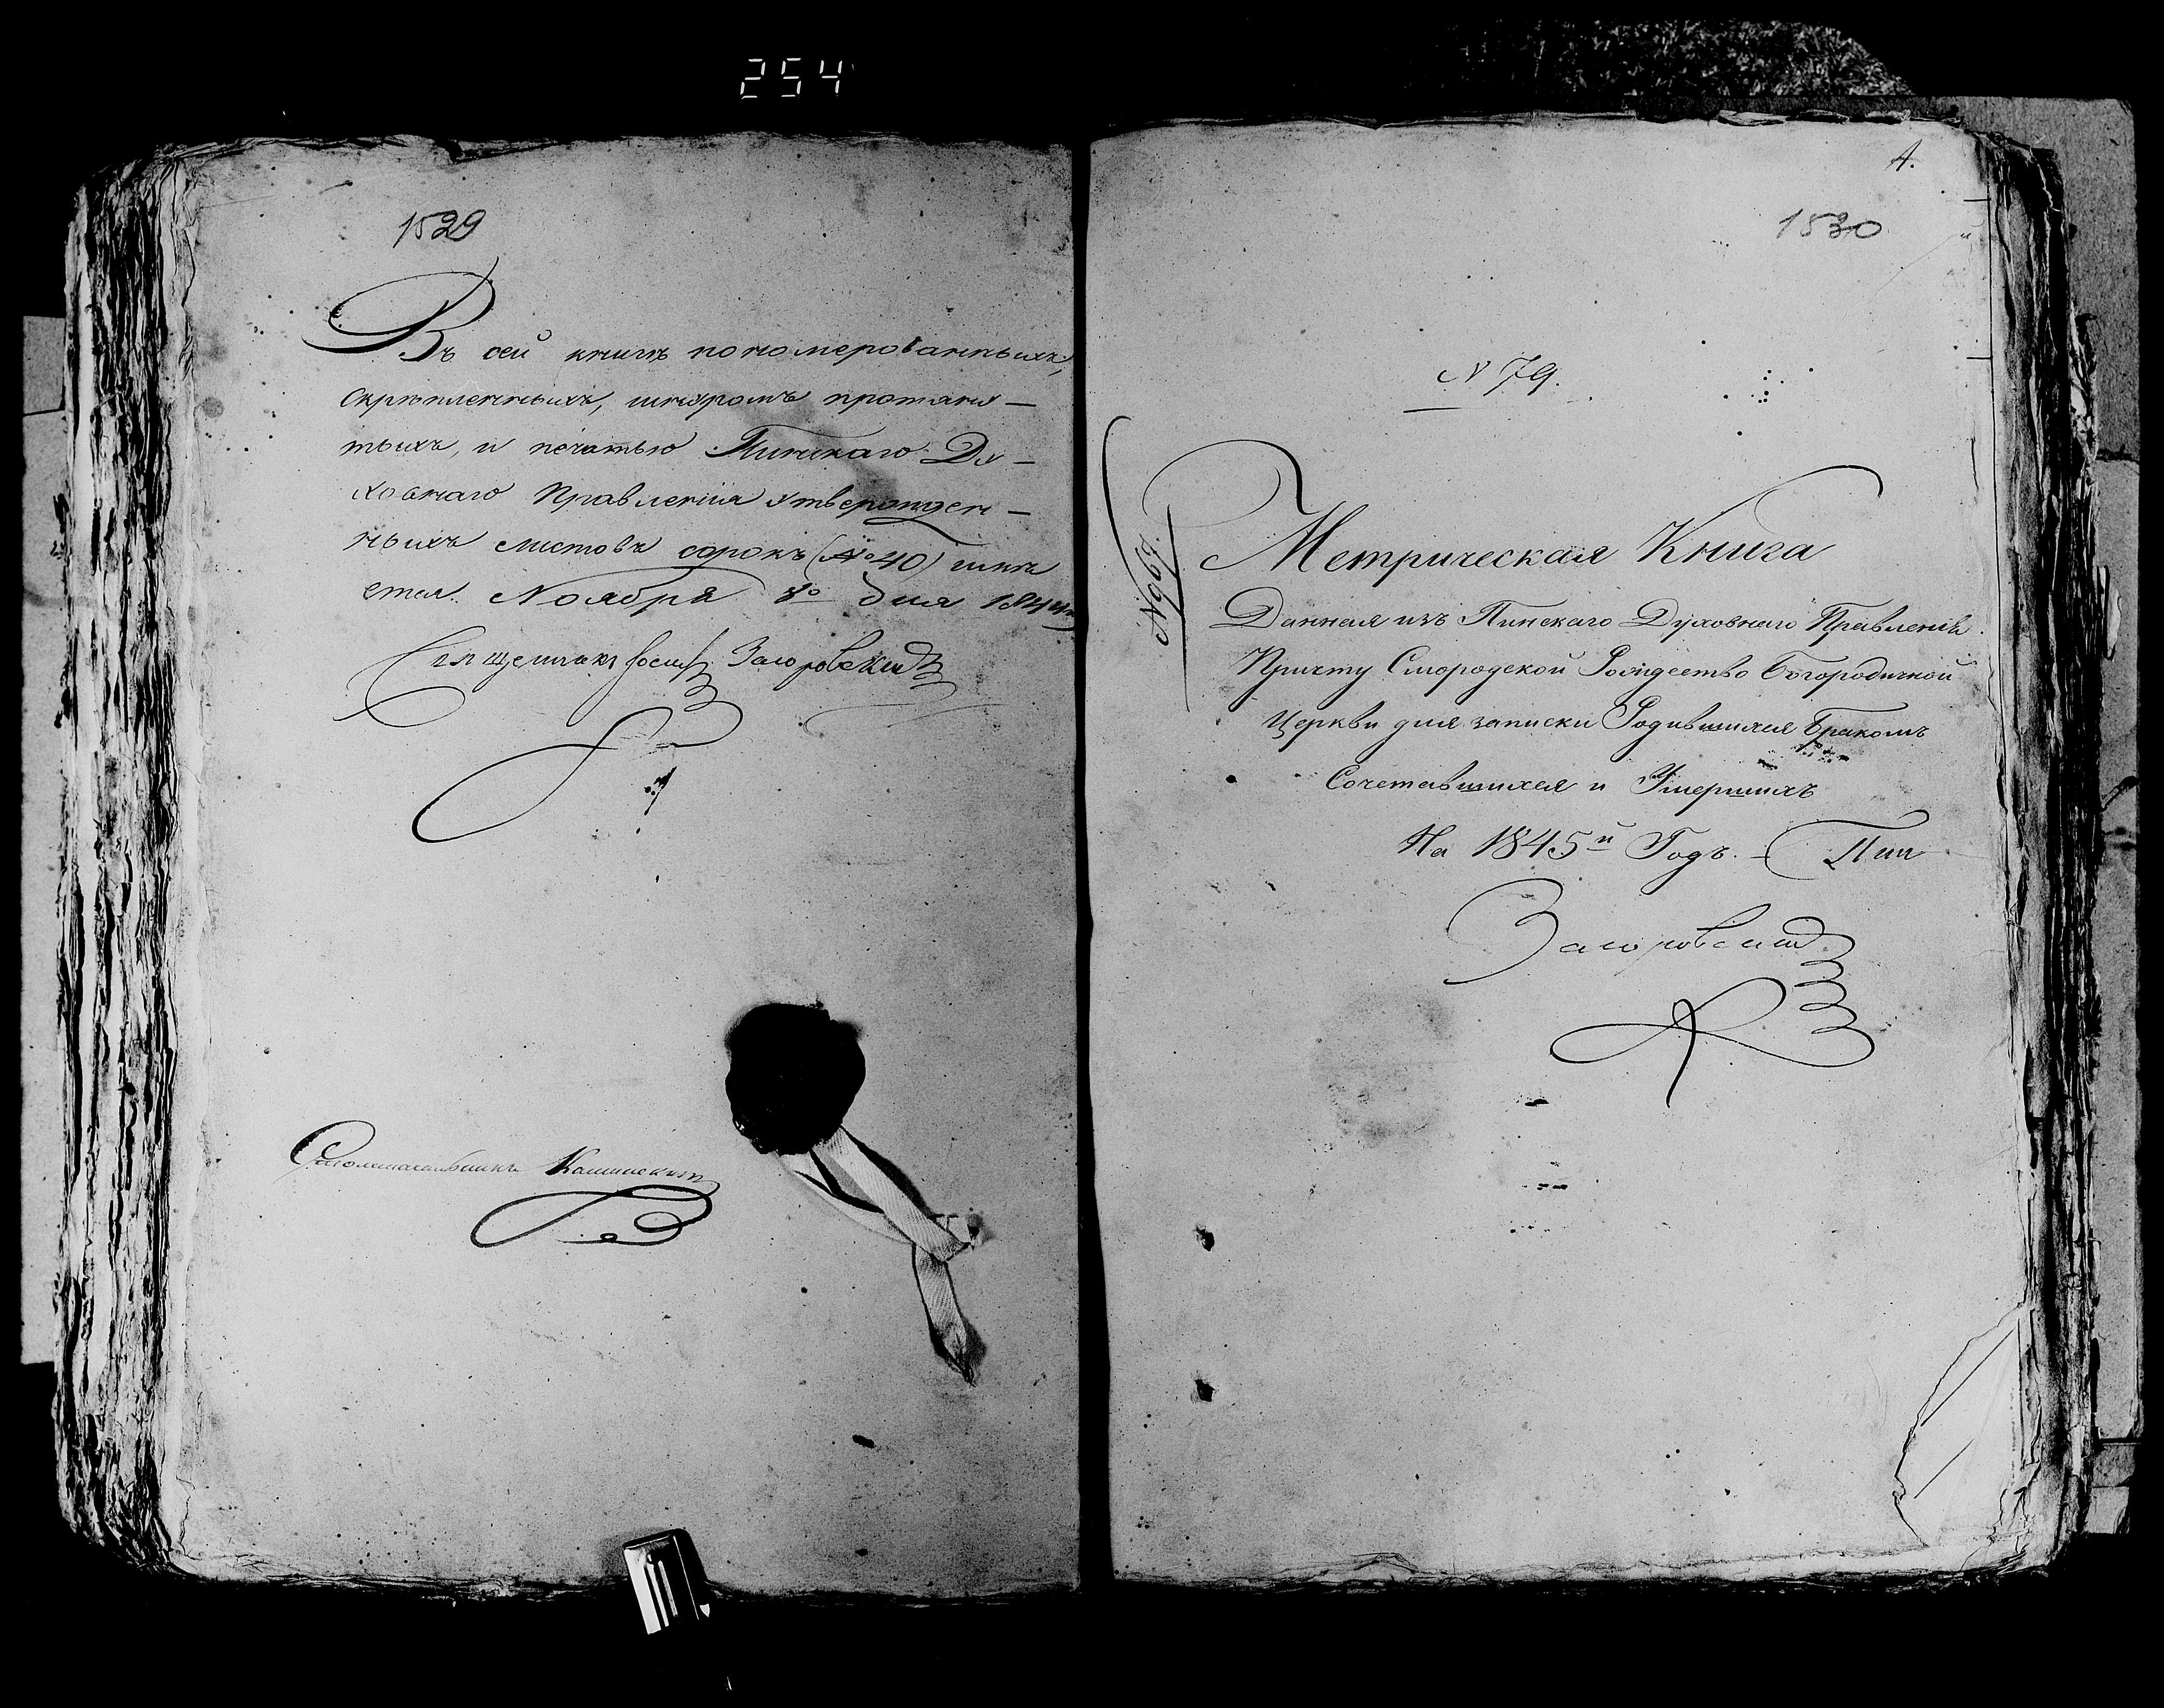 254
1529
Въ сей книгѣ пономерованныхъ,
скрѣпленныхъ, шнуромъ протяну-
тыхъ, и печатью Пинскаго Ду-
ховнаго Правленія утвержден-
ныхъ листовъ сорокъ (№ 40) имѣ
ется. Ноября 8º дня 1844
Священникъ Іосиф Загоровский
Столоначальникъ
1530
N 79.
№ 67.
Метрическая Книга
Данная изъ Пинскаго Духовнаго Правленія
Причту Смородской Рождество Богородичной
Церкви для записки Родившихся Бракомъ
Сочетавшихся и Умершихъ
На 1845й Годъ.
Загоровский